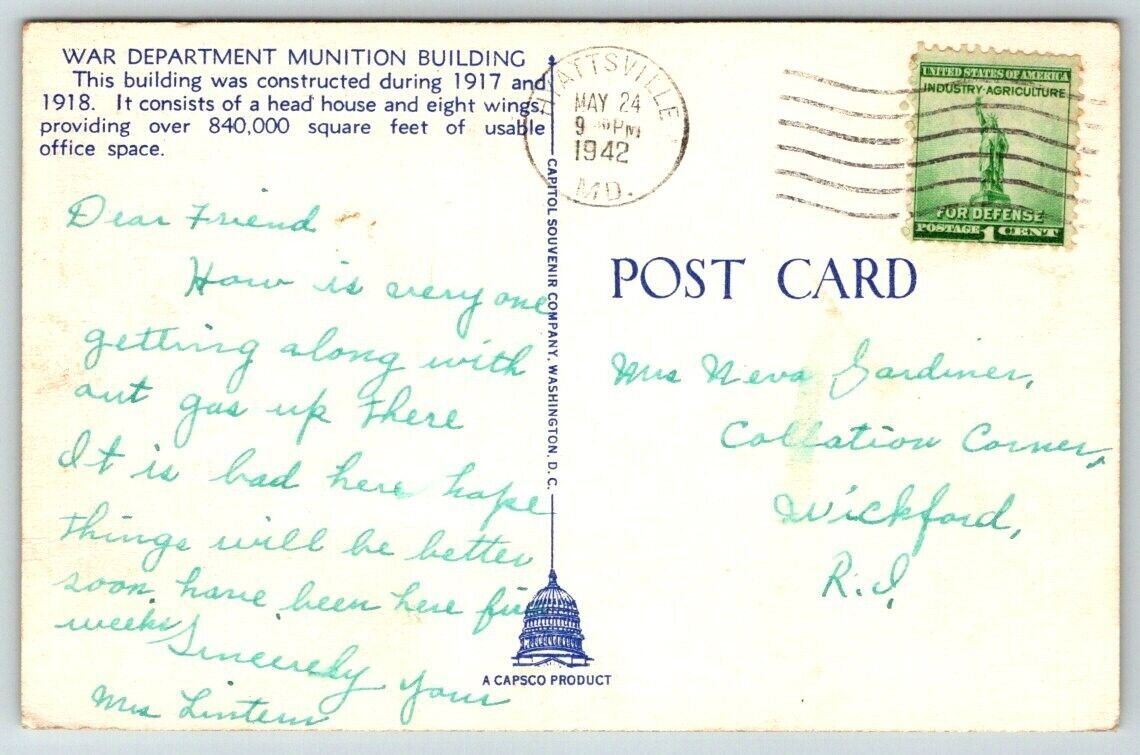 WAR DEPARTMENT MUNITION BUILDING
This building was constructed during 1917 and
1918. It consists of a head house and eight wings,
providing over 840,000 square feet of usable
office space.
HYATTSVILLE
MAY 24
9 PM
1942
MD.
UNITED STATES OF AMERICA
INDUSTRY·AGRICULTURE
FOR DEFENSE
POSTAGE 1 CENT
Dear Friend
How is every one
getting along with
out gas up there
It is bad here hope
things will be better
soon. have been here five
weeks
Sincerely your
Mrs Lintern
CAPITOL SOUVENIR COMPANY, WASHINGTON, D.C.
A CAPSCO PRODUCT
POST CARD
Mrs Neva Gardiner,
Collation Corner,
Wickford,
R.I